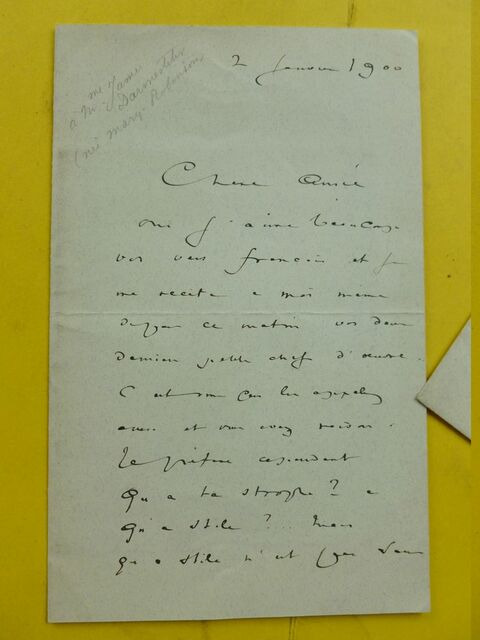 à Mme James
Darmesteter
(née Mary Robinson
2 janvier 1900
Chere Amie
oui j'aime beaucoup
vos vers français et je
me recite a moi meme
depuis ce matin vos deux
derniers petits chefs d'œuvre.
C est
avez et vous avez raison.
Je préfère cependant
Qu a ta strophe? a
Qu'a-t-elle?... mais
qu a-t-elle n'est pas sans